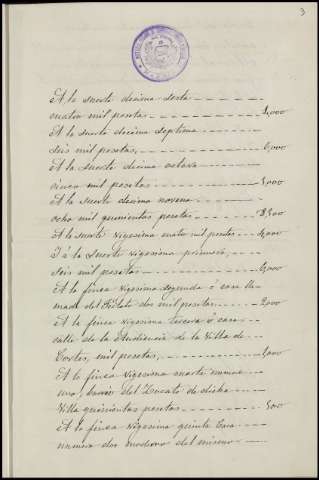 3
A la suerte decima sexta
cuatro mil pesetas 4,000
A la suerte decima septima
seis mil pesetas, 6,000
A la suerte decima octava
cinco mil pesetas 5,000
A la suerte decima novena
ocho mil quinientas pesetas 8,500
A la suerte vigesima cuatro mil pesetas 4,000
Y á la suerte vigesima primera,
seis mil pesetas 6,000
A la finca vigesima segunda ó casa lla-
mada del dos mil pesetas 2,000
A la finca vigesima tercera ó casa
calle de la Audiencia de la Villa de
Cortes, mil pesetas, 1,000
A la finca vigesima cuarta numero
uno, barrio del de dicha
Villa quinientas pesetas 500
A la finca vigesima quinta casa
numero dos moderno del mismo